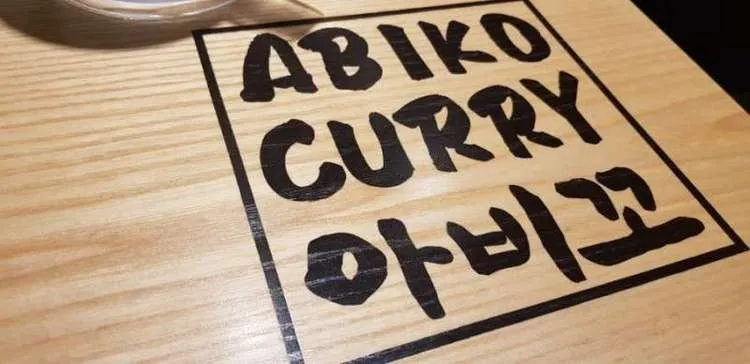 ABIKO
CURRY
아비꼬